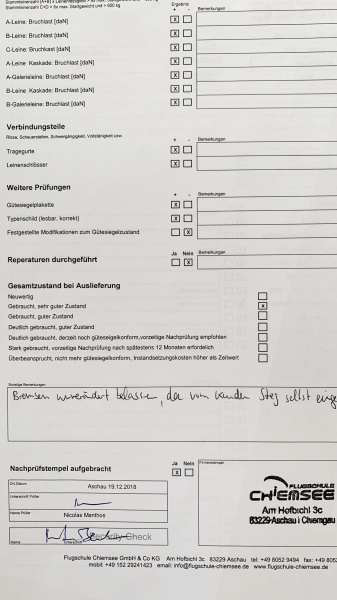 Stammleinen C+D = 6x max. Startgewicht und > 600 kg
Ergebnis
+ - Bemerkungen
A-Leine: Bruchlast [daN] X
B-Leine: Bruchlast [daN] X
C-Leine: Bruchkast [daN] X
A-Leine Kaskade: Bruchlast [daN] X
A-Galerieleine: Bruchlast [daN] X
B-Leine Kaskade: Bruchlast [daN] X
B-Galerieleine: Bruchlast [daN] X
Verbindungsteile
Risse, Scheuerstellen, Schwergängigkeit, Vollständigkeit usw.
+ - Bemerkungen
Tragegurte X
Leinenschlösser X
Weitere Prüfungen
+ - Bemerkungen
Gütesiegelplakette X
Typenschild (lesbar, korrekt) X
Festgestellte Modifikationen zum Gütesiegelzustand X
Ja Nein Bemerkungen
Reperaturen durchgeführt X
Gesamtzustand bei Auslieferung
Neuwertig
Gebraucht, sehr guter Zustand X
Gebraucht, guter Zustand
Deutlich gebraucht, guter Zustand
Deutlich gebraucht, derzeit noch gütesiegelkonform, vorzeitige Nachprüfung empfohlen
Stark gebraucht, vorzeitige Nachprüfung nach spätestens 12 Monaten erforderlich
Überbeansprucht, nicht mehr gütesiegelkonform, Instandsetzungskosten höher als Zeitwert
Sonstige Bemerkungen
Bremsen unverändert belassen, da vom Kunden Steg selbst
Nachprüfstempel aufgebracht
Ja Nein
X
Firmenstempel
Ort,Datum Aschau 19.12.2018
Unterschrift Prüfer
Name Prüfer Nicolas Manthos
Name Unterschrift Security Check
FLUGSCHULE
CHIEMSEE
Am Hofbichl 3c
83229 Aschau i Chiemgau
Flugschule Chiemsee GmbH & Co KG Am Hofbichl 3c 83229 Aschau tel: +49 8052 9494 fax: +49 805
mobil: +49 152 29241423 email: info@flugschule-chiemsee.de www.flugschule-chiemsee.de